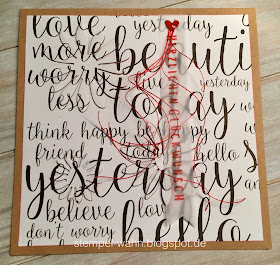 love yesterday
more beauti
worry yesterday
less today
think happy be happy
friend today hello
yesterday
believe love
don't worry hello
HERZLICHEN GLÜCKWUNSCH
stempel-wahn.blogspot.de